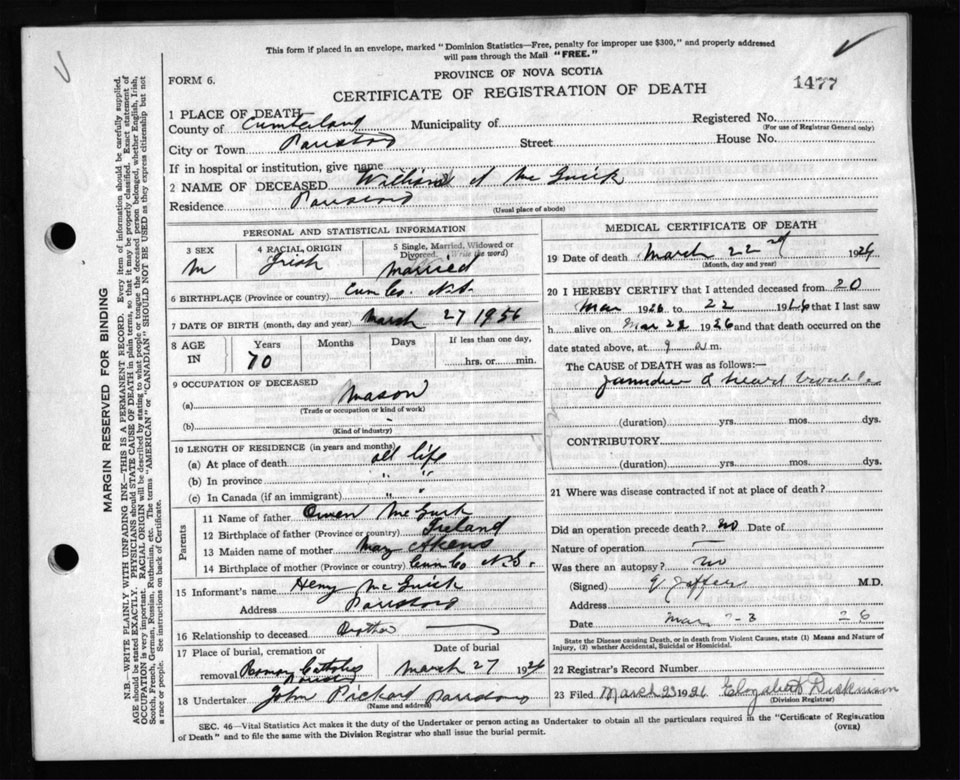 This form if placed in an envelope, marked "Dominion Statistics—Free, penalty for improper use $300," and properly addressed
will pass through the Mail "FREE."
FORM 6.
PROVINCE OF NOVA SCOTIA
CERTIFICATE OF REGISTRATION OF DEATH
1477
1 PLACE OF DEATH
County of Cumberland Municipality of Registered No.
(For use of Registrar General only)
City or Town Parrsboro Street House No.
If in hospital or institution, give name
2 NAME OF DECEASED William A Mc Guirk
Residence Parrsboro
(Usual place of abode)
PERSONAL AND STATISTICAL INFORMATION
3 SEX 4 RACIAL ORIGIN 5 Single, Married, Widowed or
Divorced. (Write the word)
M Irish Married
6 BIRTHPLACE (Province or country) Cum Co. N.S.
7 DATE OF BIRTH (month, day and year) March 27 1956
8 AGE IN Years Months Days If less than one day,
70 hrs. or min.
9 OCCUPATION OF DECEASED
(a) Mason
(Trade or occupation or kind of work)
(b)
(Kind of industry)
10 LENGTH OF RESIDENCE (in years and months)
(a) At place of death all life
(b) In province " "
(c) In Canada (if an immigrant) " "
Parents
11 Name of father Owen Mc Guirk
12 Birthplace of father (Province or country) Ireland
13 Maiden name of mother May
14 Birthplace of mother (Province or country) Cum Co N.S.
15 Informant's name Henry Mc Guirk
Address Parrsboro
16 Relationship to deceased Brother
17 Place of burial, cremation or Date of burial
removal Roman Catholic March 27 1926
Parrsboro
18 Undertaker John Pickard Parrsboro
(Name and address)
MEDICAL CERTIFICATE OF DEATH
19 Date of death March 22nd 1926
(Month, day and year)
20 I HEREBY CERTIFY that I attended deceased from 20
Mar 1926 to 22 1926 that I last saw
h alive on Mar 22 1926 and that death occurred on the
date stated above, at 9 a m.
The CAUSE of DEATH was as follows:—
Jaundice & heart trouble
(duration) yrs. mos. dys.
CONTRIBUTORY
(duration) yrs. mos. dys.
21 Where was disease contracted if not at place of death?
Did an operation precede death? no Date of
Nature of operation —
Was there an autopsy? no
(Signed) M.D.
Address
Date Mar 23 26
State the Disease causing Death, or in death from Violent Causes, state (1) Means and Nature of
Injury, (2) whether Accidental, Suicidal or Homicidal.
22 Registrar's Record Number
23 Filed March 23 1926 Elizabeth Dickinson
(Division Registrar)
SEC. 46—Vital Statistics Act makes it the duty of the Undertaker or person acting as Undertaker to obtain all the particulars required in the "Certificate of Registration
of Death" and to file the same with the Division Registrar who shall issue the burial permit.
(OVER)
MARGIN RESERVED FOR BINDING
N.B.—WRITE PLAINLY WITH UNFADING INK—THIS IS A PERMANENT RECORD. Every item of information should be carefully supplied.
AGE should be stated EXACTLY. PHYSICIANS should STATE CAUSE OF DEATH in plain terms, so that it may be properly classified. Exact statement of
OCCUPATION is very important. RACIAL ORIGIN will be described by stating to what people or tongue the deceased person belonged, whether English, Irish,
Scotch, French, German, Russian, Ruthenian, etc. The terms "AMERICAN" or "CANADIAN" SHOULD NOT BE USED as they express citizenship but not
a race or people. See instructions on back of Certificate.